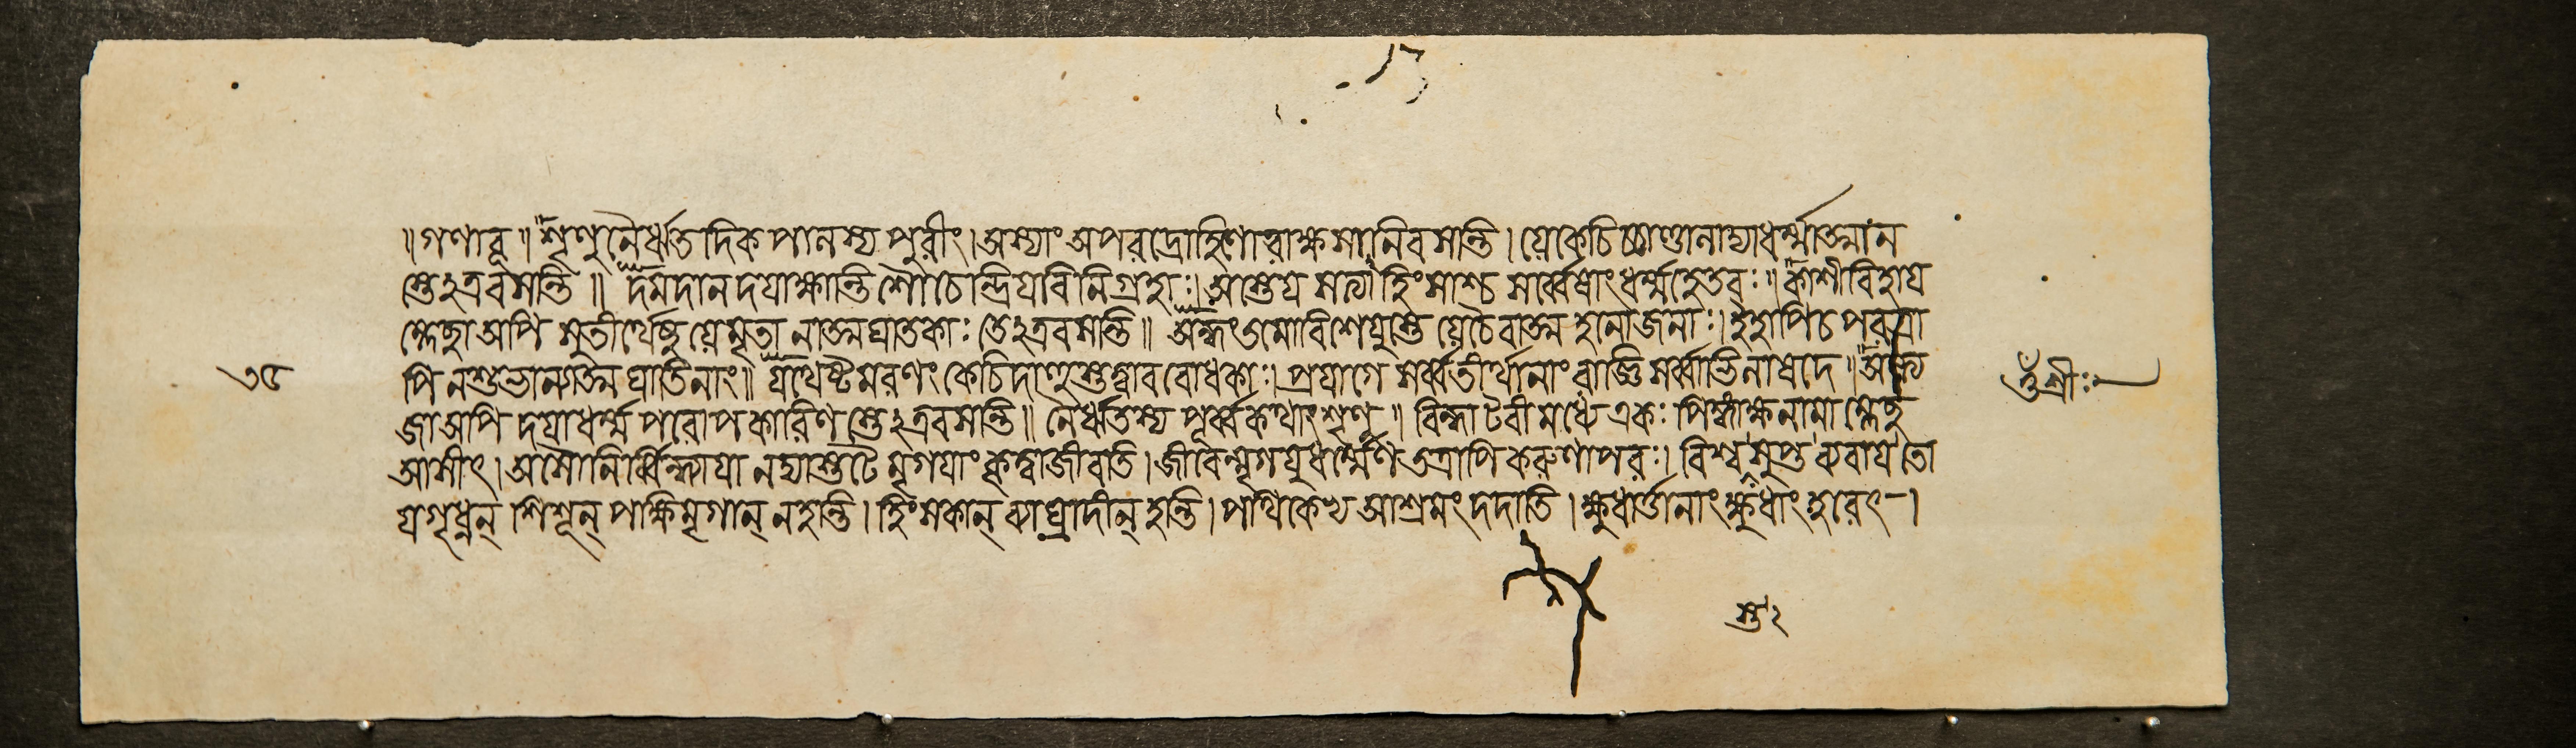 ॥ গণাবূ ॥ শৃণু নৈরৃত দিক পালস্য পুরীং । অস্যাং অপরদ্রোহিণো রাক্ষসা নিবসন্তি । যে কেচি চ্চাণ্ডালাদ্যা ধর্ম্মাত্মান
স্তেঽত্র বসন্তি ॥ দমদান দয়াক্ষান্তি শৌচেন্দ্রিয়বিনিগ্রহাঃ । অস্তেয় সত্যাহিংসাশ্চ সর্ব্বেষাং ধর্ম্মহেতবঃ ॥ কাশী বিহায়
ম্লেছা অপি সুতীর্থেষু যে মৃতা নাত্মঘাতকাঃ তেঽত্র বসন্তি ॥ অন্ধং তমো বিশেয়ুস্তে যে চৈবাত্ম হনো জনাঃ । ইহাপি চ পরত্রা
পি ন শুভান্যাত্ম ঘাতিনাং ॥ যথেষ্টমরণং কেচিদাহুস্তত্ত্বাববোধকাঃ । প্রয়াগে সর্ব্বতীর্থানাং রাজ্ঞি সর্ব্বার্তিনাষদে ॥ অন্ত্য
জা অপি দয়াধর্ম্ম পরোপকারিণ স্তেঽত্র বসন্তি ॥ নৈরৃতস্য পূর্ব্ব কথাং শৃণু ॥ বিন্ধাটবী মধ্যে একঃ পিঙ্গাক্ষ নামা ম্লেছ
আসীৎ । অসৌ নির্ব্বিন্ধ্যায়া নদ্যাস্তটে মৃগয়াং কৃত্বা জীবতি । জীবেন্মৃগয়ুধর্ম্মেণ তত্রাপি করুণাপরঃ । বিশ্ব সুপ্ত ব্যবায়
শিশূন্ পক্ষিমৃগান্ ন হন্তি । হিংসকান্ ব্যাঘ্রাদীন্ হন্তি । পথিকেভ্য আশ্রমং দদাতি । ক্ষুধার্তানাং ক্ষুধাং হরেৎ ।
৩৫
শ্রীঃ
স্তু ২